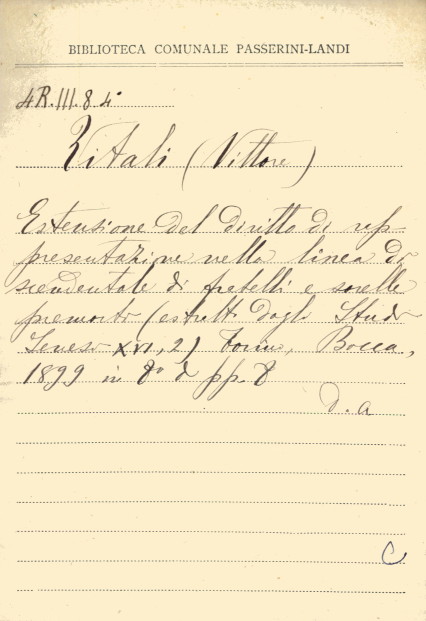 BIBLIOTECA COMUNALE PASSERINI-LANDI
4R.III.84
Vitali (Vittore)
Estensione del diritto di rap-
presentazione nella linea di
scendentale di fratelli e sorelle
premorti (estratto dagli Studi
Senesi XVI, 2) Torino, Bocca,
1899 in 8° di pp. 8
D. a
C